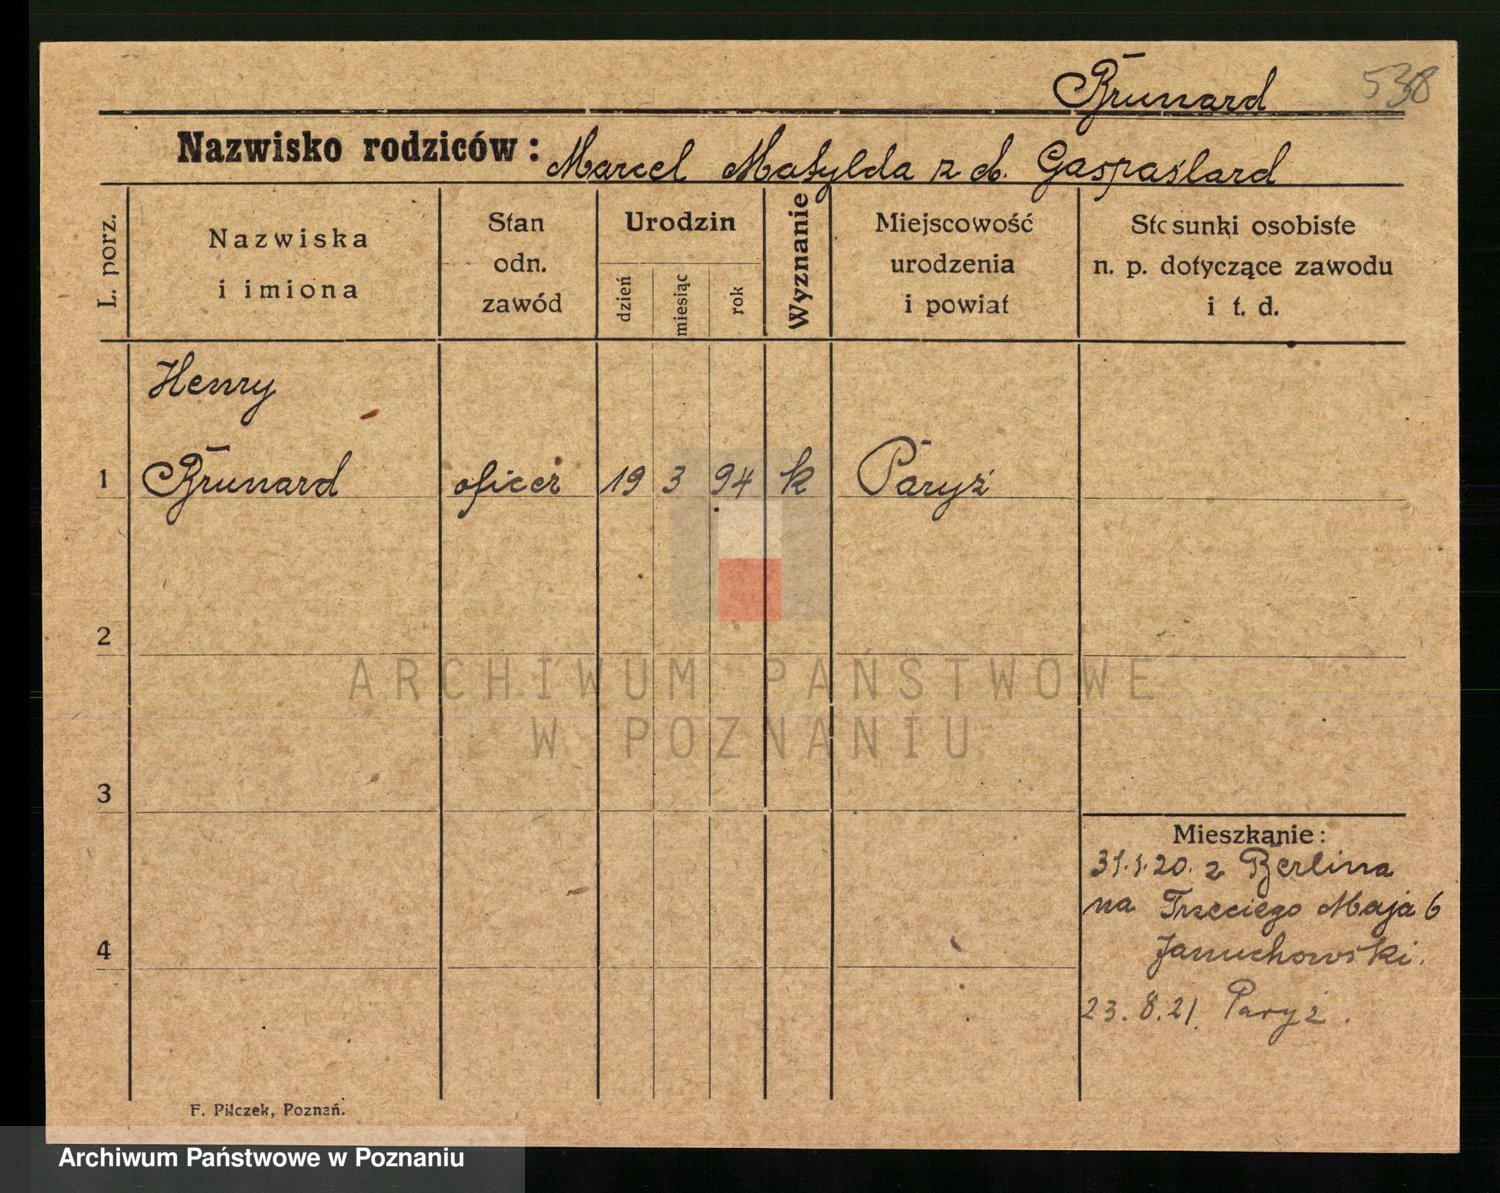 Brunard 538
Nazwisko rodziców: Marcel Matylda z d. Gaspaślard
L. porz.
Nazwiska
i imiona
Stan
odn.
zawód
Urodzin
dzień
miesiąc
rok
Wyznanie
Miejscowość
urodzenia
i powiat
Stosunki osobiste
n. p. dotyczące zawodu
i t. d.
Henry
1 Brunard oficer 19 3 94 k Paryż
2
ARCHIWUM PAŃSTWOWE
W POZNANIU
3
Mieszkanie:
31.1.20. z Berlina
na Trzeciego Maja 6
Januchowski.
4
23.8.21. Paryż.
F. Pilczek, Poznań.
Archiwum Państwowe w Poznaniu